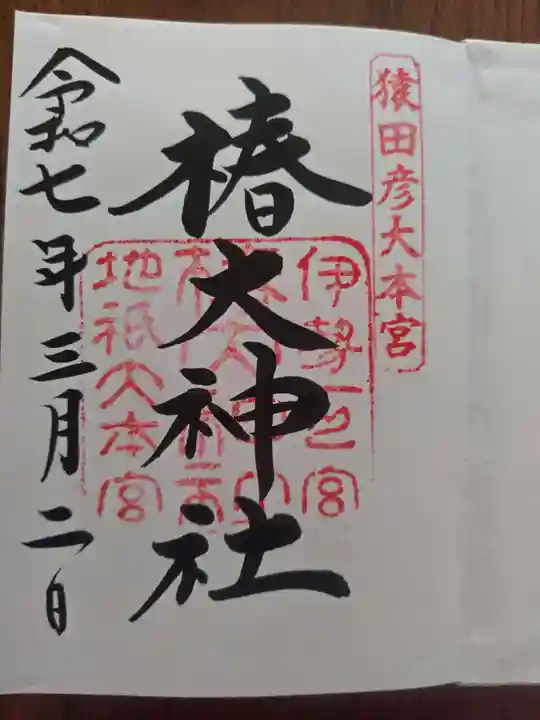 猿田彦大本宮
伊勢一之宮
椿大神社
地祇大本宮
令和七年三月二日